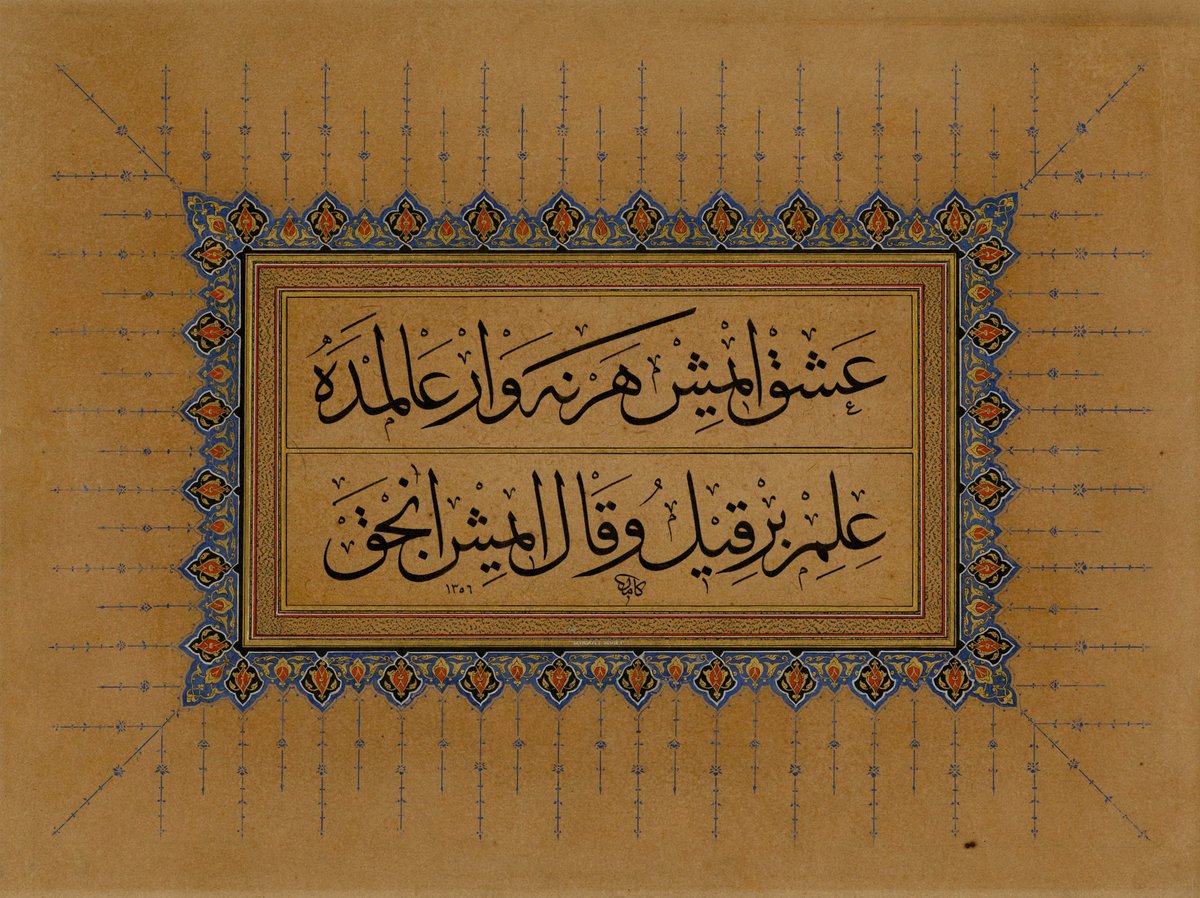 عشق ایمیش هر نه وار عالمده
علم بر قیل و قال ایمیش انجق
كامل
١٣٥٦